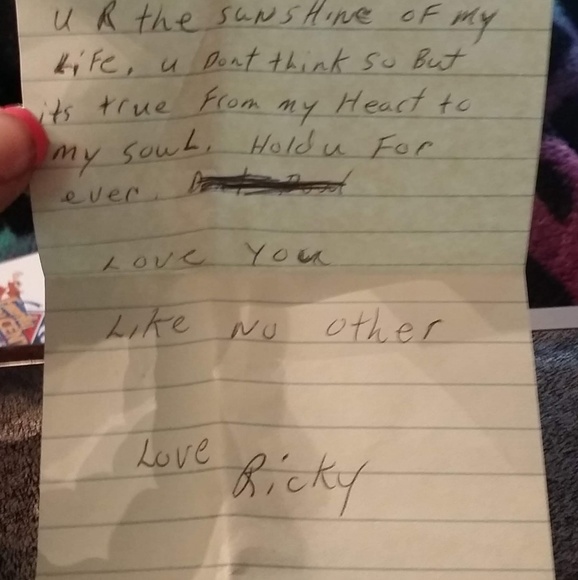 U R the sunsHine oF my
LiFe, u Dont think so But
its true From my Heart to
my souL. Hold u For
ever.
Love You
Like No other
Love Ricky